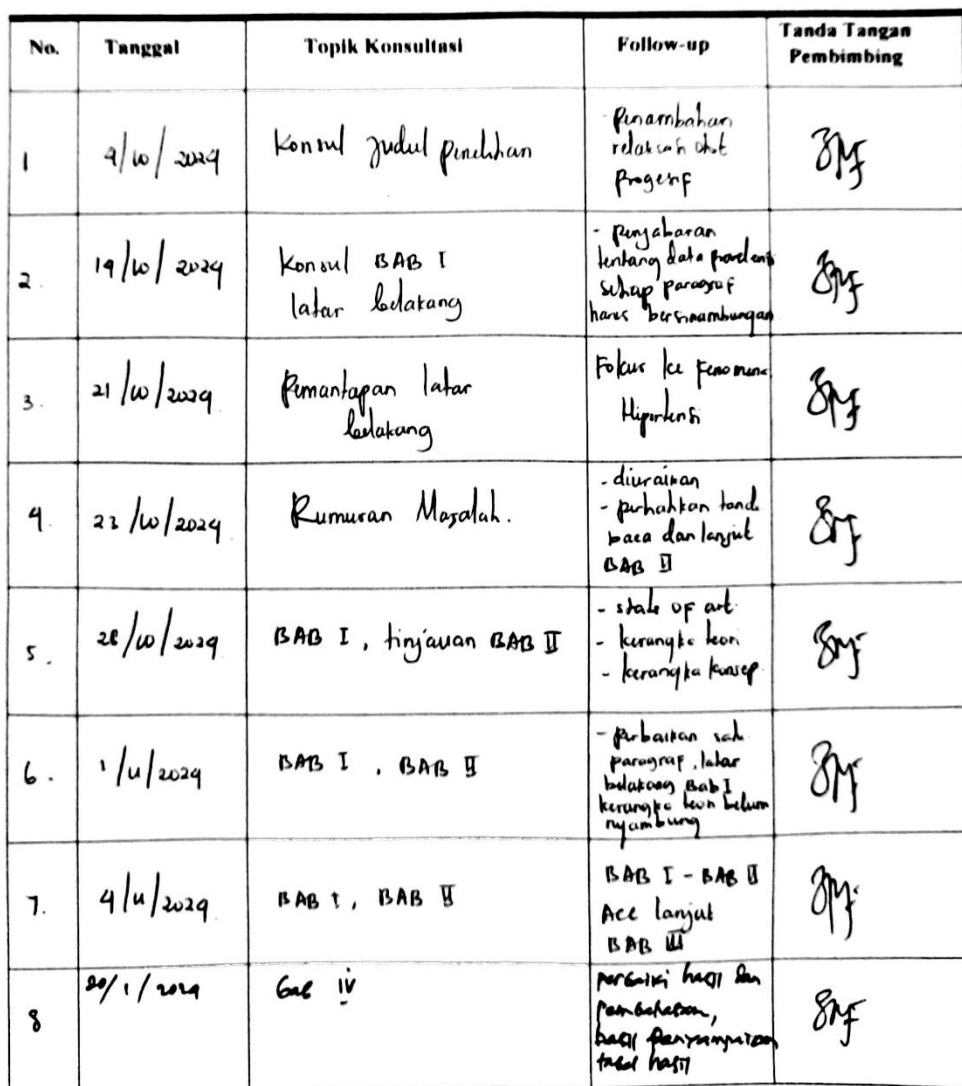 No. Tanggal Topik Konsultasi Follow-up Tanda Tangan
Pembimbing
1 9/10/2024 Konsul Judul penelitian - Penambahan
relaksasi otot
Progesif
2. 19/10/2024 Konsul BAB I - penjabaran
latar belakang tentang data prevalensi
setiap paragraf
harus bersinambungan
3. 21/10/2024 Pemantapan latar Fokus ke Fenomena
belakang Hipertensi
4. 23/10/2024 Rumusan Masalah. - diuraikan
- perhatikan tanda
baca dan lanjut
BAB II
5. 28/10/2024 BAB I, tinjauan BAB II - state of art
- kerangka teori
- kerangka konsep
6. 1/11/2024 BAB I, BAB II - perbaikan
paragraf, latar
belakang Bab I
kerangka teori belum
nyambung
7. 4/11/2024 BAB I, BAB II BAB I - BAB II
Acc lanjut
BAB III
8 20/1/2024 Bab IV perbaiki hasil dan
pembahasan,
hasil
tabel hasil